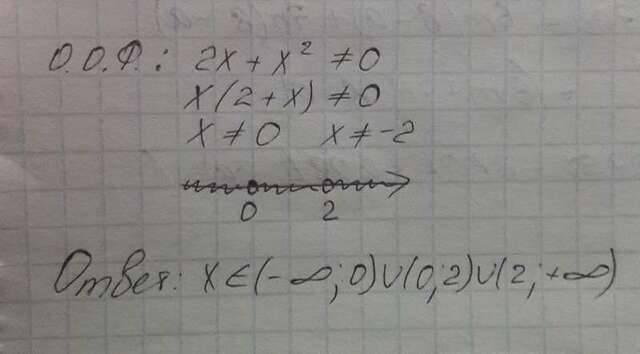 О.О.Ф.: 2x + x² ≠ 0
x(2+x) ≠ 0
x ≠ 0 x ≠ -2
0 2
Ответ: x ∈ (-∞; 0) ∪ (0; 2) ∪ (2; +∞)